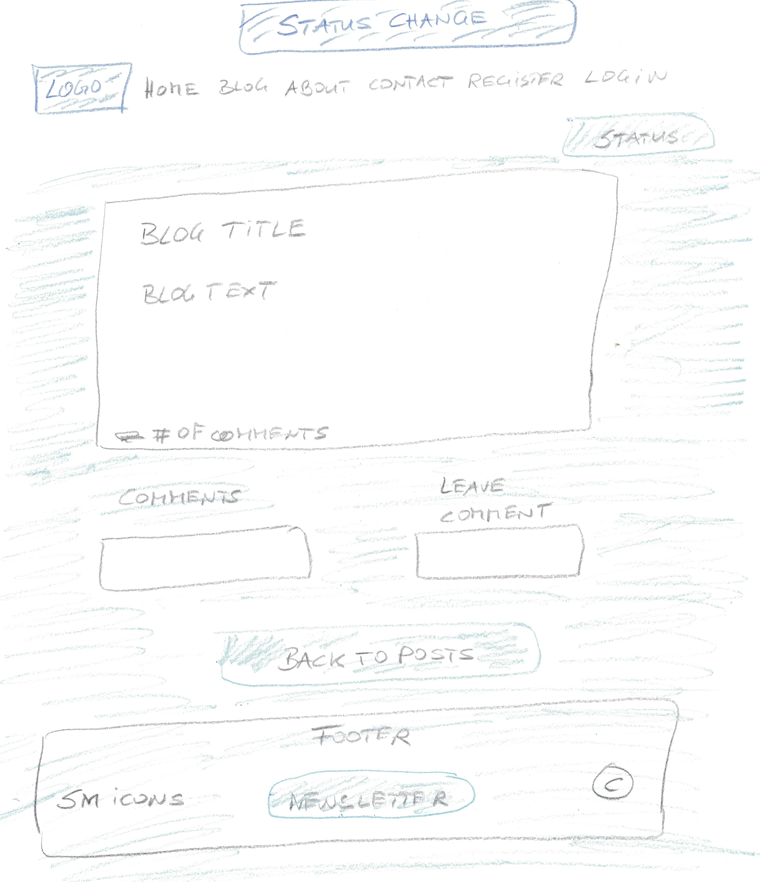 STATUS CHANGE
LOGO HOME BLOG ABOUT CONTACT REGISTER LOGIN
STATUS
BLOG TITLE
BLOG TEXT
# OF COMMENTS
COMMENTS
LEAVE
COMMENT
BACK TO POSTS
FOOTER
SM ICONS NEWSLETTER C